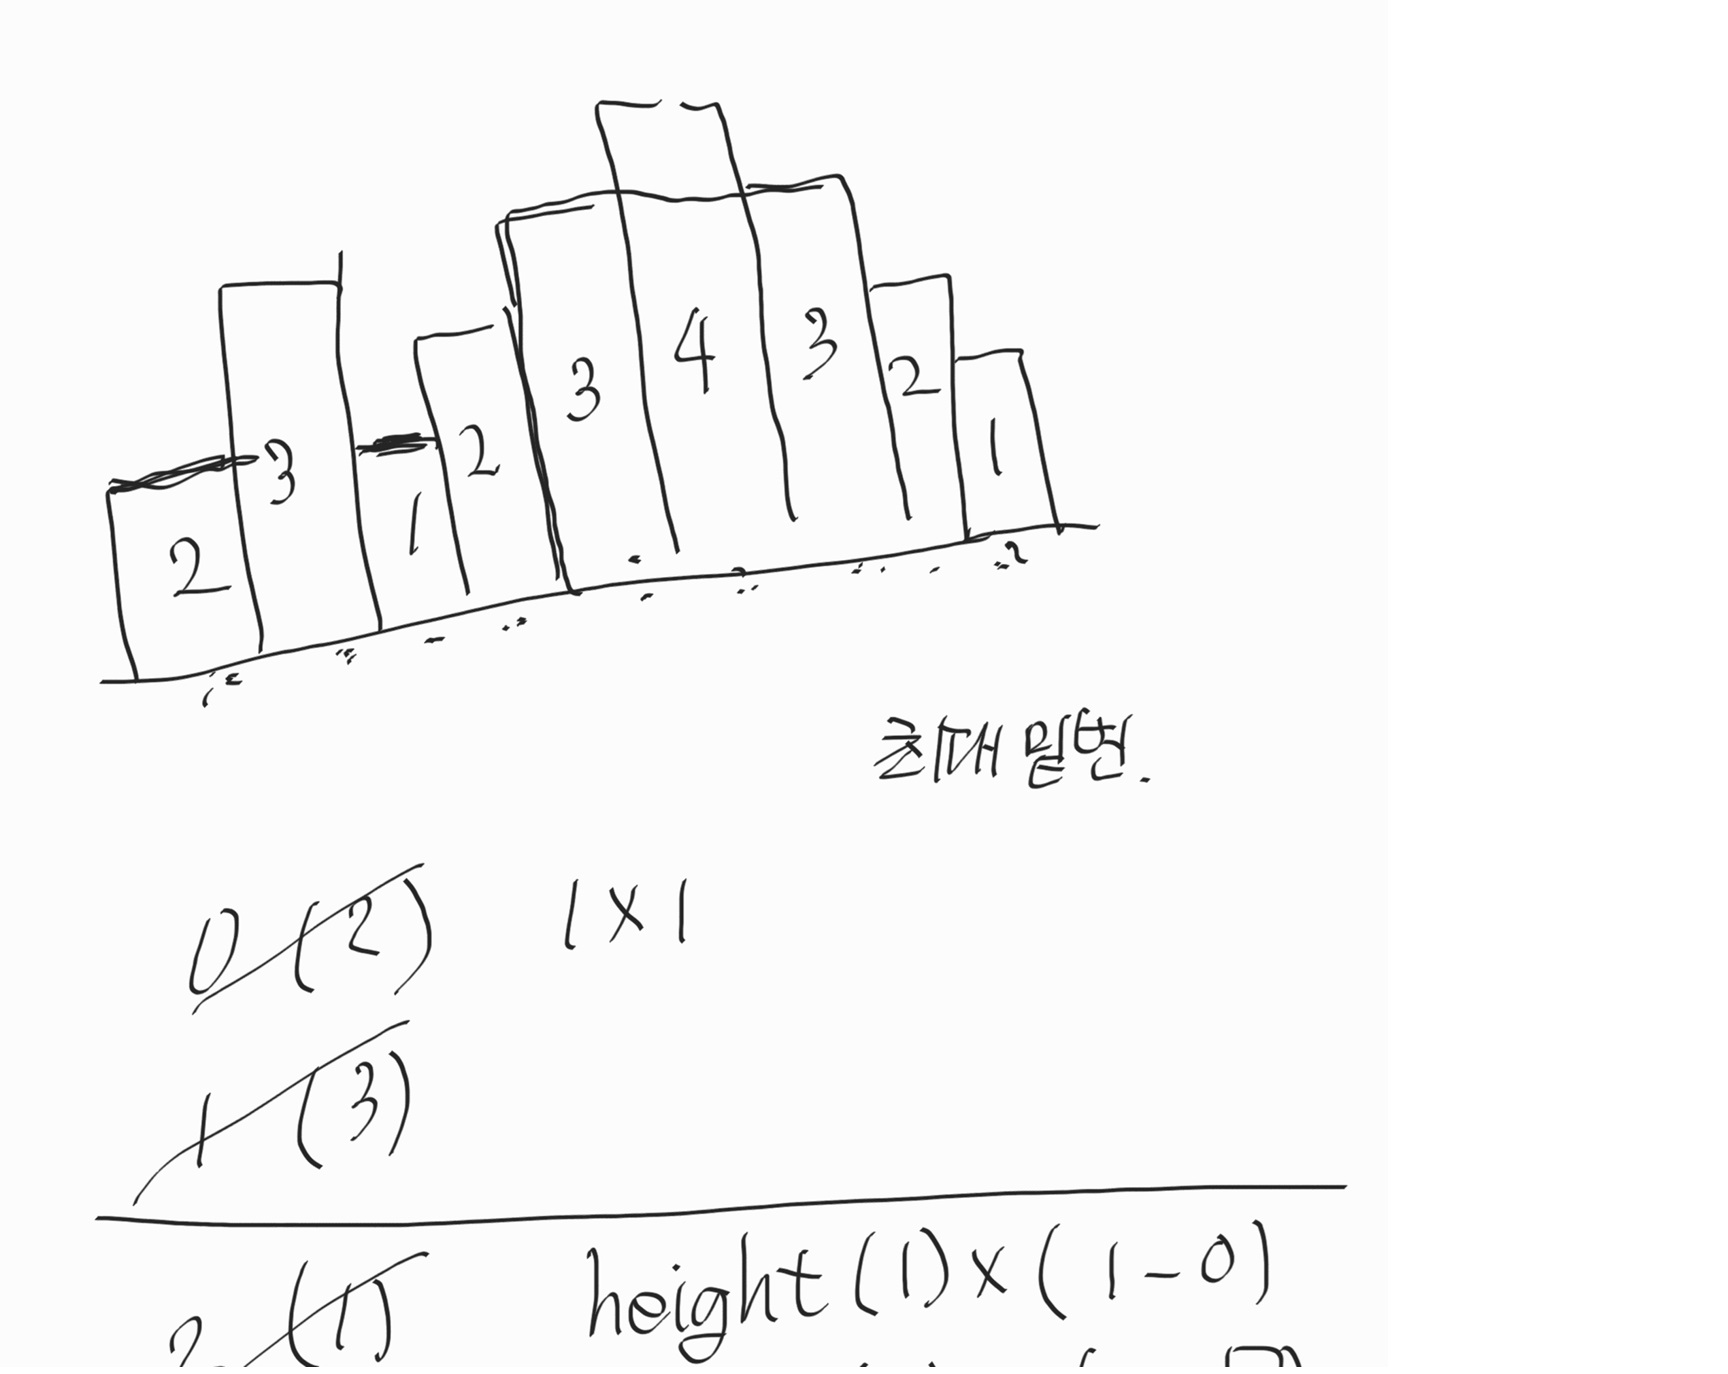 2 3 1 2 3 4 3 2 1
최대 밑변.
0 (2) 1 x 1
1 (3)
2 (1) height (1) x (1-0)